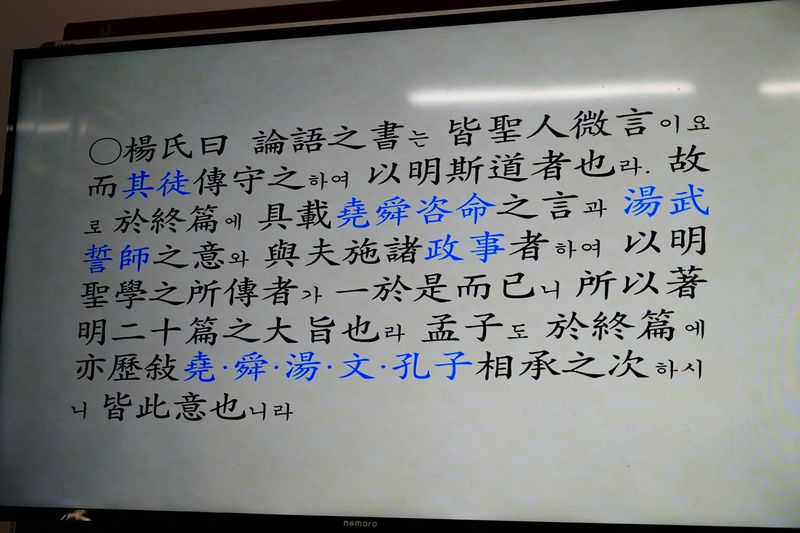 ○楊氏曰 論語之書는 皆聖人微言이요
而其徒傳守之하여 以明斯道者也라. 故
로 於終篇에 具載堯舜咨命之言과 湯武
誓師之意와 與夫施諸政事者하여 以明
聖學之所傳者가 一於是而已니 所以著
明二十篇之大旨也라 孟子도 於終篇에
亦歷敍堯·舜·湯·文·孔子相承之次하시
니 皆此意也니라
nemoro